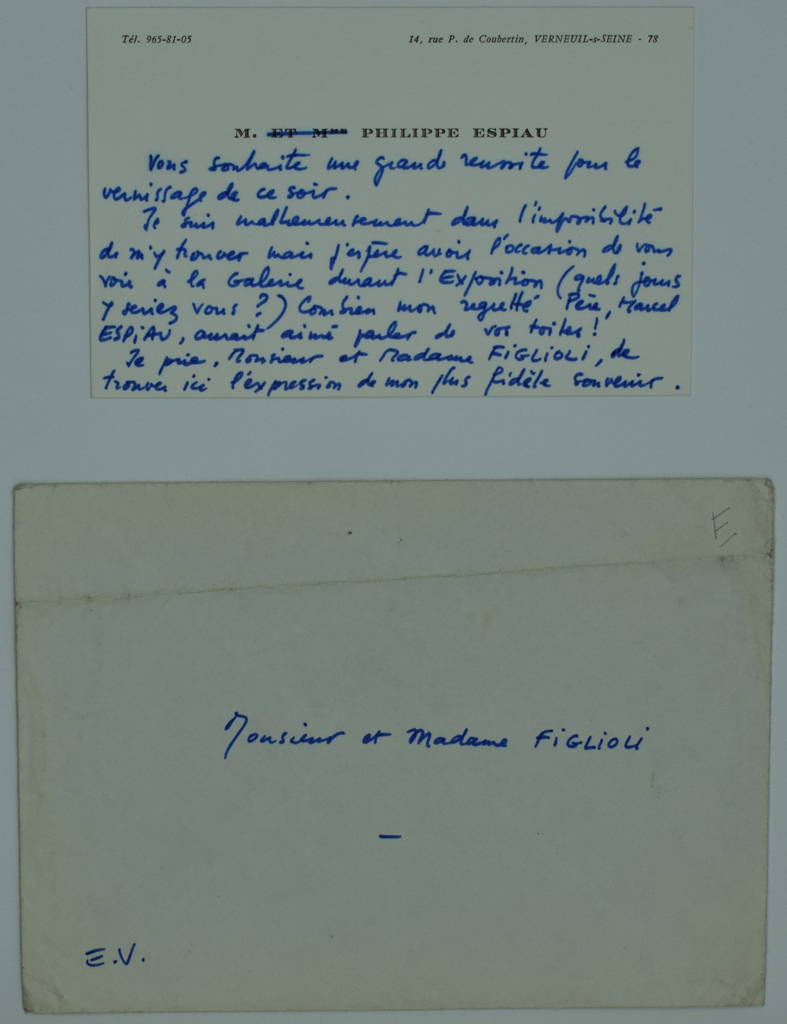 Tél. 965-81-05
14, rue P. de Coubertin, VERNEUIL-s-SEINE - 78
M. ET Mme PHILIPPE ESPIAU
Vous souhaite une grande réussite pour le
vernissage de ce soir.
Je suis malheureusement dans l'impossibilité
de m'y trouver mais j'espère avoir l'occasion de vous
voir à la Galerie durant l'Exposition (quels jours
y seriez vous ?) Combien mon regretté Père, Marcel
ESPIAU, aurait aimé parler de vos toiles !
Je prie, Monsieur et Madame FIGLIOLI, de
trouver ici l'expression de mon plus fidèle souvenir.
E
Monsieur et Madame FIGLIOLI
—
E.V.